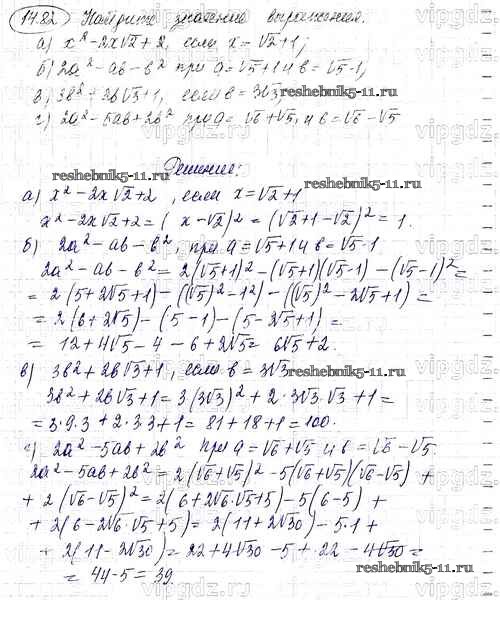 14.82) Найдите значение выражения.
а) x² - 2x√2 + 2, если x = √2 + 1;
б) 2a² - ab - b² при a = √5 + 1 и b = √5 - 1;
в) 3b² + 2b√3 + 1, если b = 3√3;
г) 2a² - 5ab + 2b² при a = √6 + √5, и b = √6 - √5
Решение:
а) x² - 2x√2 + 2, если x = √2 + 1
x² - 2x√2 + 2 = (x - √2)² = (√2 + 1 - √2)² = 1.
б) 2a² - ab - b², при a = √5 + 1 и b = √5 - 1
2a² - ab - b² = 2(√5 + 1)² - (√5 + 1)(√5 - 1) - (√5 - 1)² =
= 2(5 + 2√5 + 1) - ((√5)² - 1²) - ((√5)² - 2√5 + 1) =
= 2(6 + 2√5) - (5 - 1) - (5 - 2√5 + 1) =
= 12 + 4√5 - 4 - 6 + 2√5 = 6√5 + 2.
в) 3b² + 2b√3 + 1, если b = 3√3
3b² + 2b√3 + 1 = 3(3√3)² + 2·3√3·√3 + 1 =
= 3·9·3 + 2·3·3 + 1 = 81 + 18 + 1 = 100.
г) 2a² - 5ab + 2b² при a = √6 + √5 и b = √6 - √5.
2a² - 5ab + 2b² = 2(√6 + √5)² - 5(√6 + √5)(√6 - √5) +
+ 2(√6 - √5)² = 2(6 + 2√6·√5 + 5) - 5(6 - 5) +
+ 2(6 - 2√6·√5 + 5) = 2(11 + 2√30) - 5·1 +
+ 2(11 - 2√30) = 22 + 4√30 - 5 + 22 - 4√30 =
= 44 - 5 = 39.
reshebnik5-11.ru
reshebnik5-11.ru
reshebnik5-11.ru
reshebnik5-11.ru
reshebnik5-11.ru
vipgdz.ru